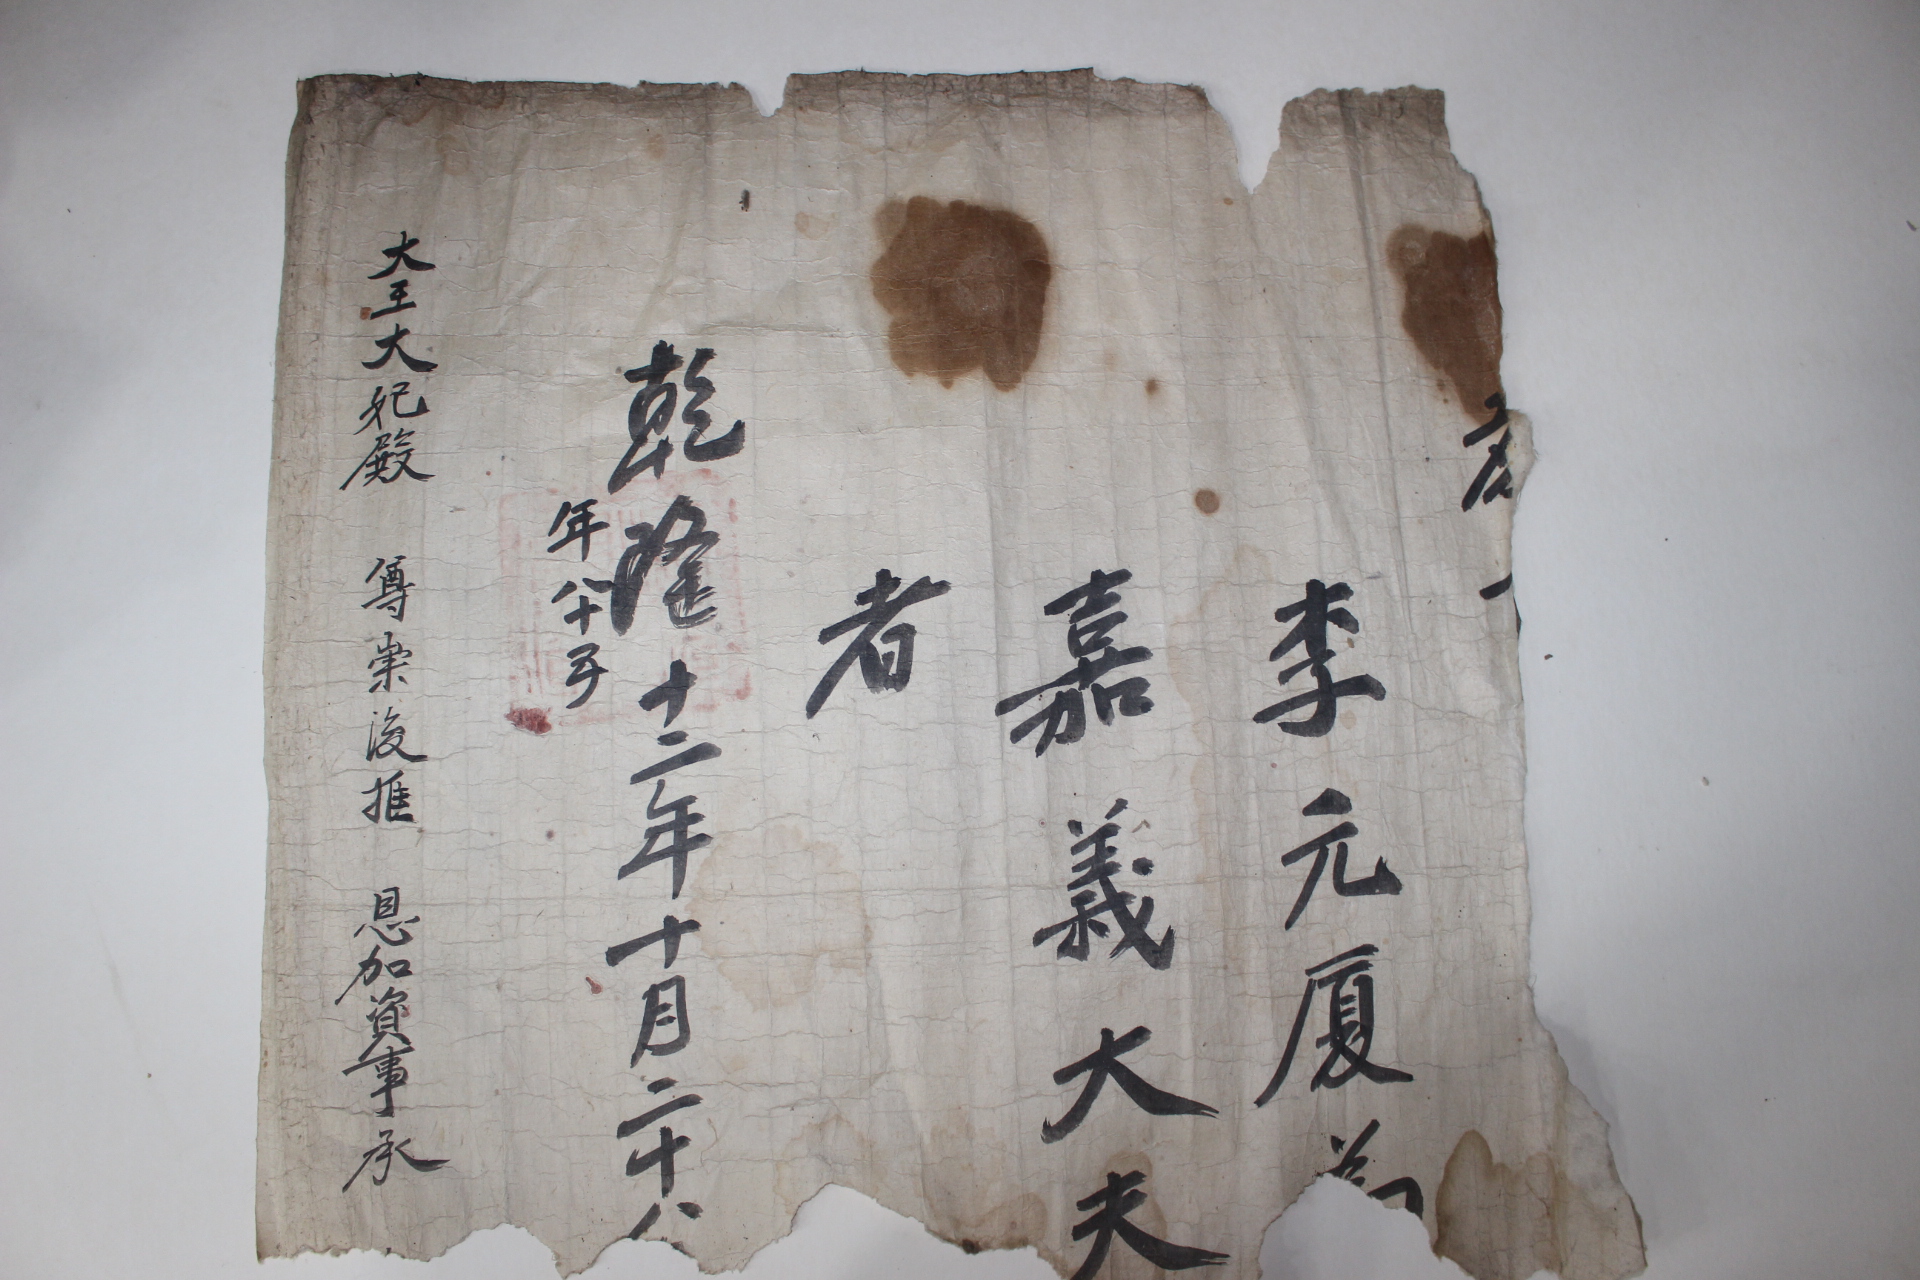 李元厦爲
嘉義大夫
者
乾隆十二年十月二十八
年八十
大王大妃殿 尊崇後推 恩加資事承